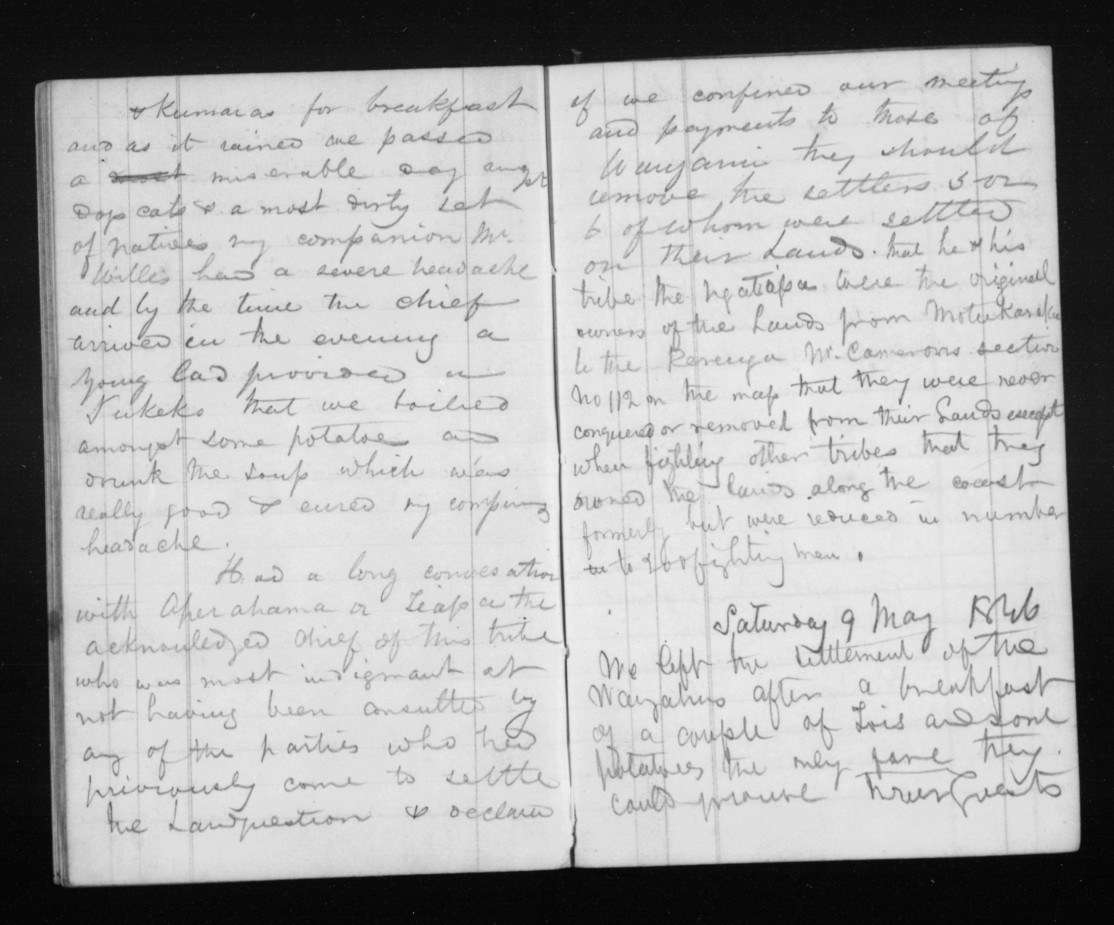 & Kumaras for breakfast
and as it rained we passed
a most miserable day amgst
dogs cats & a most dirty set
of natives my companion Mr.
Wills had a severe headache
and by the time the chief
arrived in the evening a
young lad provided a
Pukeko that we boiled
amongst some potatoes and
drunk the soup which was
really good & cured my compns
headache.
Had a long convesation
with Aperahama or Tiapa the
acknowledged chief of this tribe
who was most indignant at
not having been consulted by
any of the parties who had
previously come to settle
the Land question & declared
if we confined our meeting
and payments to those of
Wanganui they should
remove the settlers 5 or
6 of whom were settled
on their Lands. that he & his
tribe the Ngatiapa were the original
owners of the Lands from Motu Karaka
to the Mr. Camerons section
No 112 on the map that they were never
conquered or removed from their Lands except
when fighting other tribes that they
owned the lands along the coast
formerly but were reduced in number
to 200 fighting men.
Saturday 9 May 1846
We left the settlement of the
after a breakfast
of a couple of Tois and some
potatoes the only fare they
could procure their Guests